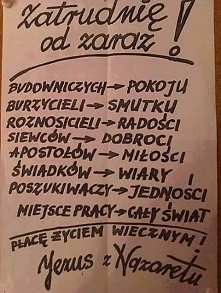 Zatrudnię
od zaraz!
BUDOWNICZYCH → POKOJU
BURZYCIELI → SMUTKU
ROZNOSICIELI → RADOŚCI
SIEWCÓW → DOBROCI
APOSTOŁÓW → MIŁOŚCI
ŚWIADKÓW → WIARY
POSZUKIWACZY → JEDNOŚCI
MIEJSCE PRACY → CAŁY ŚWIAT
PŁACĘ ŻYCIEM WIECZNYM!
Jezus z Nazaretu